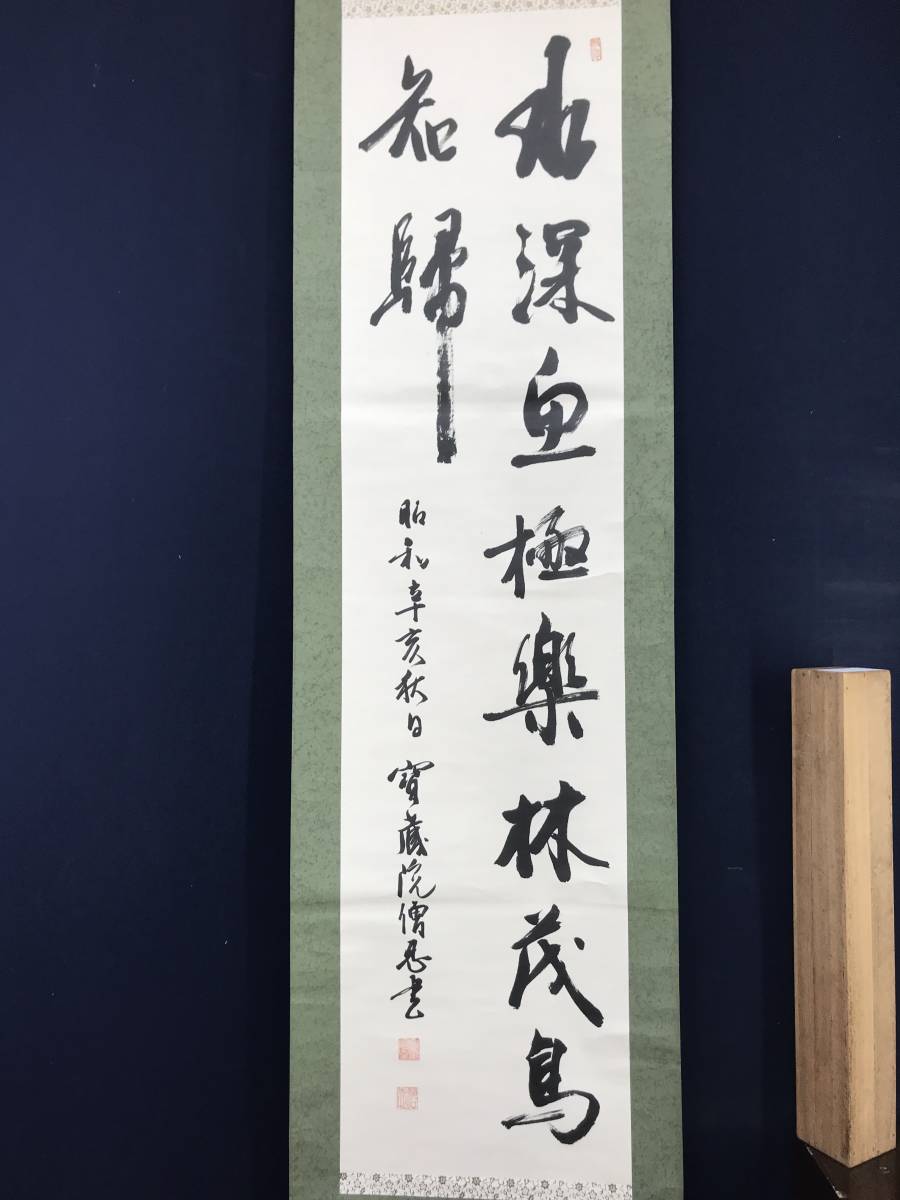 水深魚極樂林茂鳥
知歸
昭和辛亥秋日 寶蔵院僧忍書